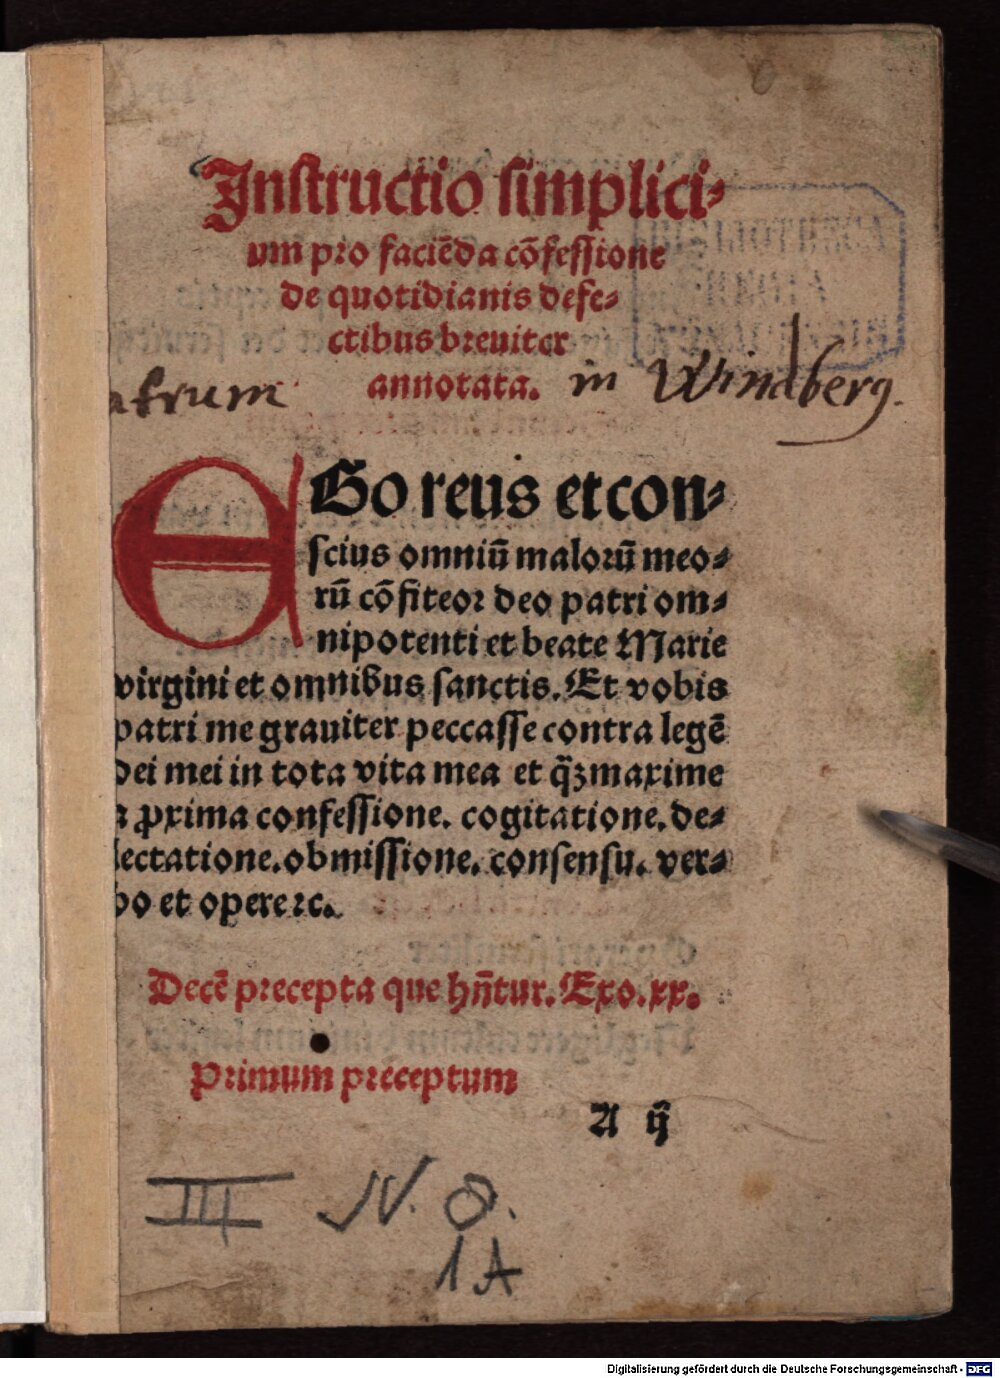 Instructio simplici-
um pro faciēda cōfessione
de quotidianis defe-
ctibus breuiter
annotata.
atrum in Windberg.
EGo reus et con-
scius omniū maloꝝū meo-
rū cōfiteor deo patri om-
nipotenti et beate Marie
virgini et omnibus sanctis. Et vobis
patri me grauiter peccasse contra legē
dei mei in tota vita mea et q̄ꝫmaxime
a ꝓxima confessione. cogitatione. de-
lectatione. obmissione. consensu. ver-
bo et oꝑe ⁊c.
Decē precepta que hn̄tur. Exo. xx.
Primum preceptum
A ij
III N. 8.
1A
Digitalisierung gefördert durch die Deutsche Forschungsgemeinschaft - DFG